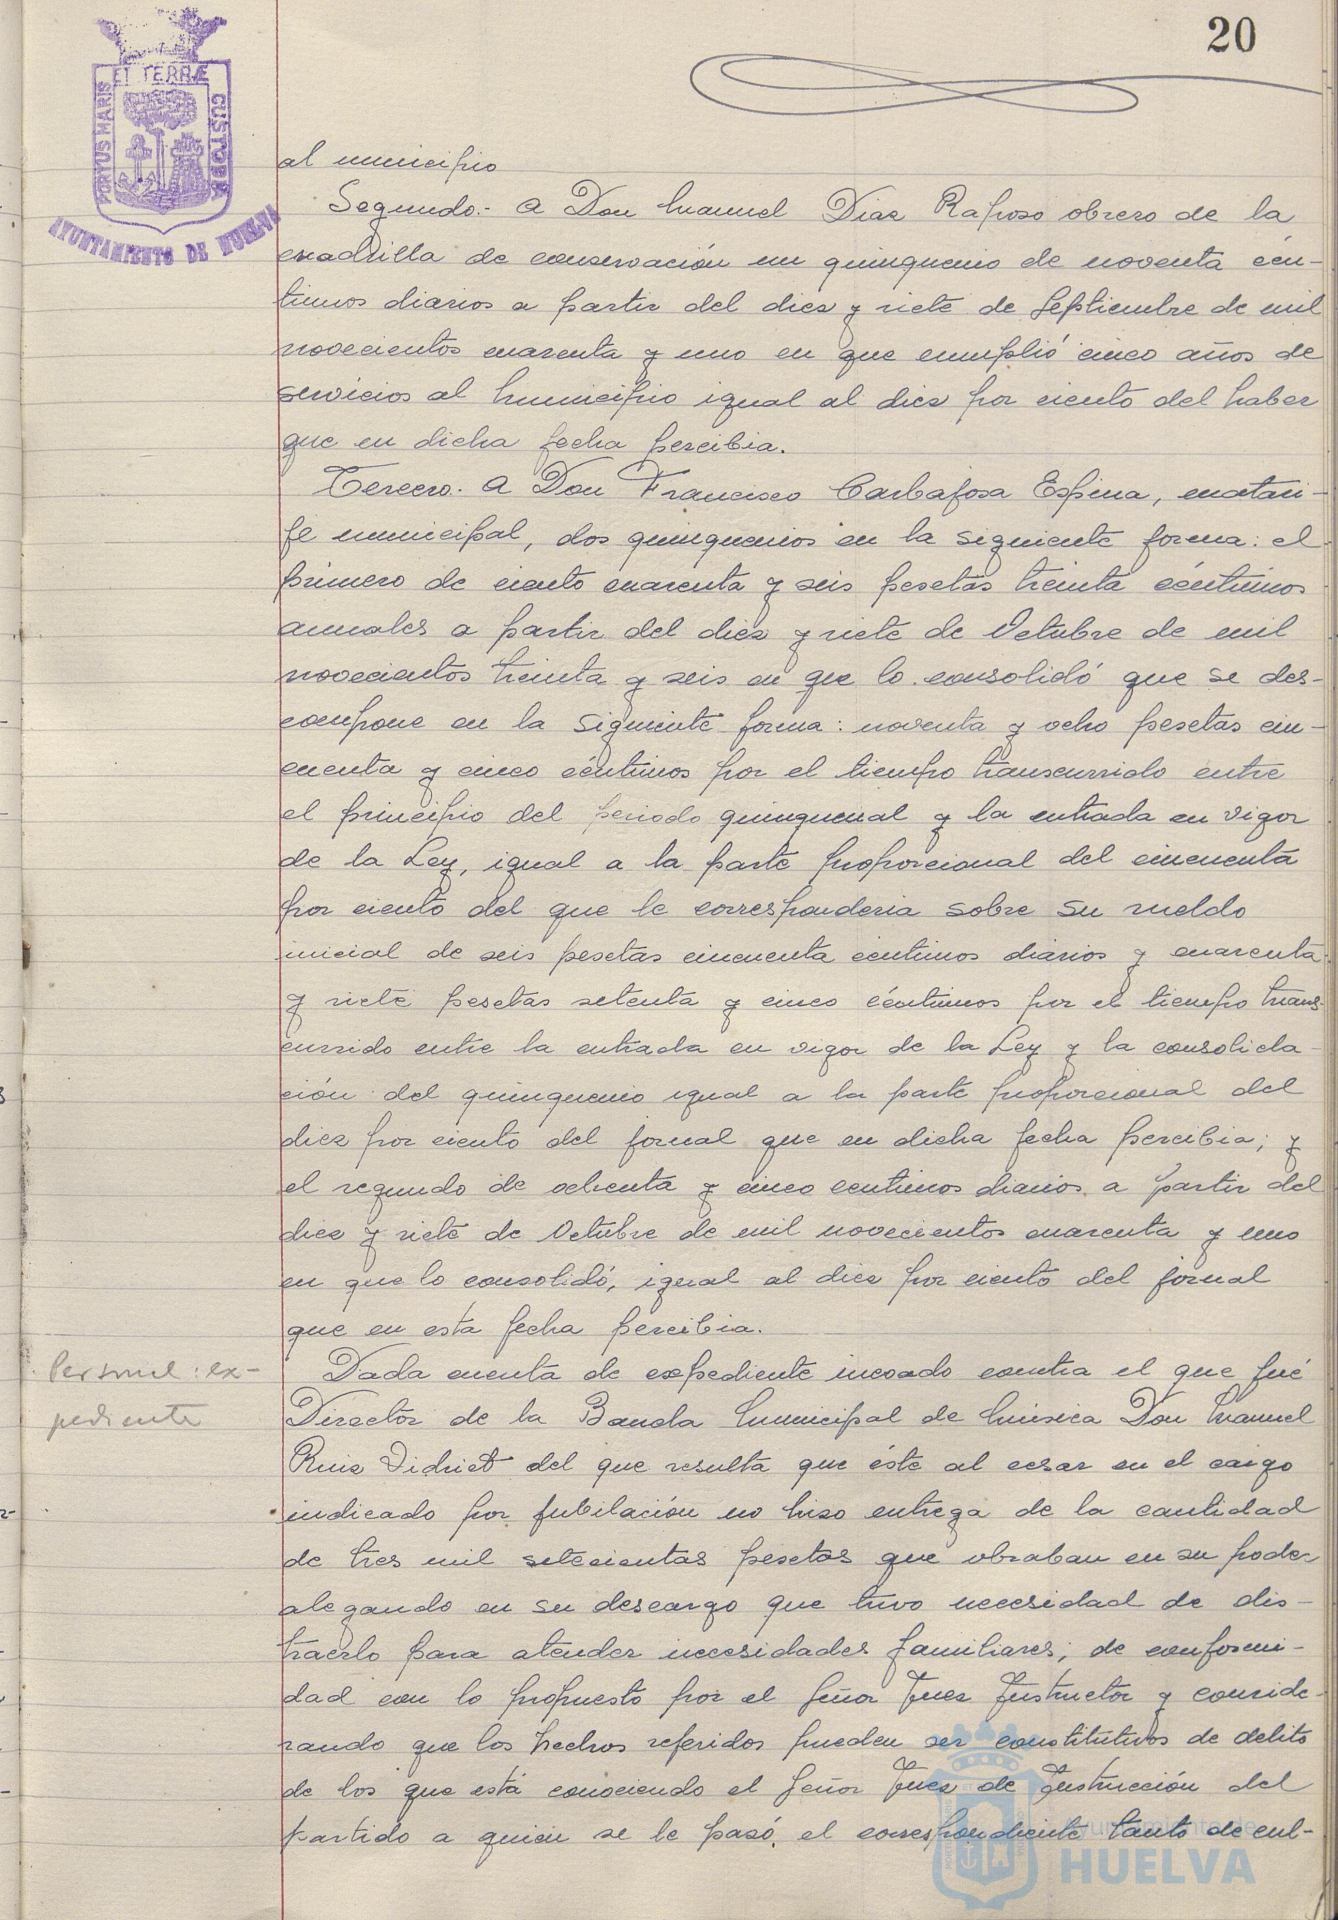 20
ET TERRÆ
PORTUS MARIS
CUSTODIA
AYUNTAMIENTO DE HUELVA
al municipio
Segundo.- A Don Manuel Diaz Raposo obrero de la
cuadrilla de conservación un quinquenio de noventa cén-
timos diarios a partir del diez y siete de Septiembre de mil
novecientos cuarenta y uno en que cumplió cinco años de
servicios al Municipio igual al diez por ciento del haber
que en dicha fecha percibia.
Tercero. A Don Francisco Carbajosa Espina, matari-
fe municipal, dos quinquenios en la siguiente forma: el
primero de ciento cuarenta y seis pesetas treinta céntimos
anuales a partir del diez y siete de Octubre de mil
novecientos treinta y seis en que lo consolidó que se des-
compone en la siguiente forma: noventa y ocho pesetas cin-
cuenta y cinco céntimos por el tiempo transcurrido entre
el principio del periodo quinquenal y la entrada en vigor
de la Ley, igual a la parte proporcional del cincuenta
por ciento del que le corresponderia sobre su sueldo
inicial de seis pesetas cincuenta centimos diarios y cuarenta
y siete pesetas setenta y cinco céntimos por el tiempo trans-
currido entre la entrada en vigor de la Ley y la consolida-
ción del quinquenio igual a la parte proporcional del
diez por ciento del jornal que en dicha fecha percibia; y
el segundo de ochenta y cinco centimos diarios a partir del
diez y siete de Octubre de mil novecientos cuarenta y uno
en que lo consolidó, igual al diez por ciento del jornal
que en esta fecha percibia.
Personal: ex-
pediente
Dada cuenta de expediente incoado contra el que fué
Director de la Banda Municipal de Música Don Manuel
Ruiz Vidriet del que resulta que éste al cesar en el cargo
indicado por jubilación no hizo entrega de la cantidad
de tres mil setecientas pesetas que obraban en su poder
alegando en su descargo que tuvo necesidad de dis-
traerlo para atender necesidades familiares; de conformi-
dad con lo propuesto por el Señor Juez Instructor y conside-
rando que los hechos referidos pueden ser constitutivos de delito
de los que está conociendo el Señor Juez de Instrucción del
partido a quien se le pasó el correspondiente tanto de cul-
Ayuntamiento de
HUELVA